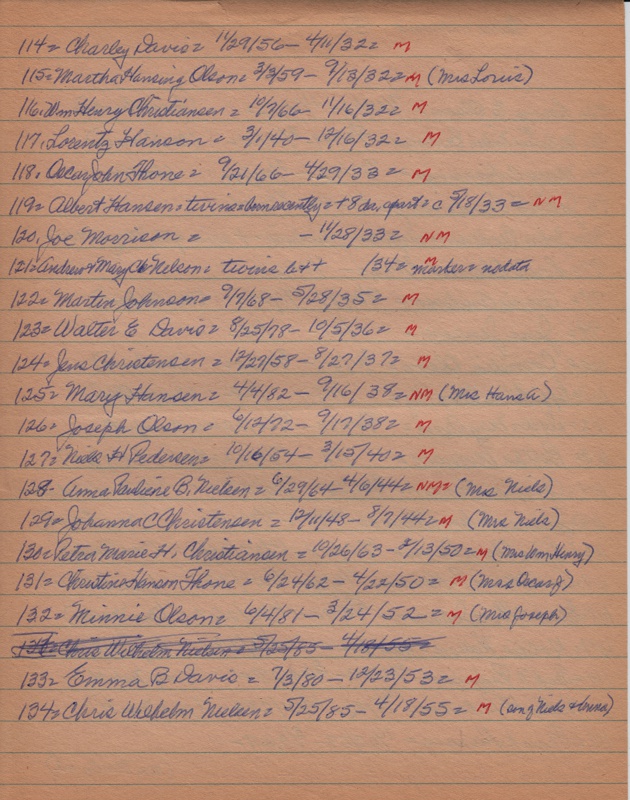 114= Charley Davis= 11/29/56- 4/11/32= M
115= Martha Hansing Olson= 3/3/59- 9/13/32= M (Mrs Loris)
116. Wm Henry Christiansen= 10/7/66- 11/16/32= M
117. Lorentz Hanson= 3/1/40- 12/16/32= M
118. Oscar John Thone= 9/21/66- 4/29/33= M
119= Albert Hansen= twins= born recently= + 8 da. apart= c 5/18/33= NM
120. Joe Morrison= - 11/28/33= NM
121= Andrew & Mary Nelson= twins b&+ /34= M marker= no data
122= Martin Johnson= 9/7/68- 5/28/35= M
123= Walter E Davis= 8/25/78- 10/5/36= M
124= Jens Christensen= 12/27/58- 8/27/37= M
125= Mary Hansen= 4/4/82- 9/16/38= NM (Mrs Hans A)
126= Joseph Olson= 6/12/72- 9/17/38= M
127= Niels H Pedersen= 10/16/54- 3/15/40= M
128- Anna Pauliene B. Nielsen= 6/29/64- 4/6/44= NM= (Mrs Niels)
129= Johanna C Christensen= 12/11/48- 8/7/44= M (Mrs Nils)
130= Petra Marie H. Christiansen= 10/26/63- 2/13/50= M (Mrs Wm. Henry)
131= Christine Hanson Thone= 6/24/62- 4/22/50= M (Mrs Oscar J)
132= Minnie Olson= 6/4/81- 3/24/52= M (Mrs Joseph)
Chris Wilhelm Nielsen= 5/25/85- 4/18/55=
133= Emma B Davis= 7/3/80- 12/23/53= M
134= Chris Wilhelm Nielsen= 5/25/85- 4/18/55= M (son of Niels & Anna)